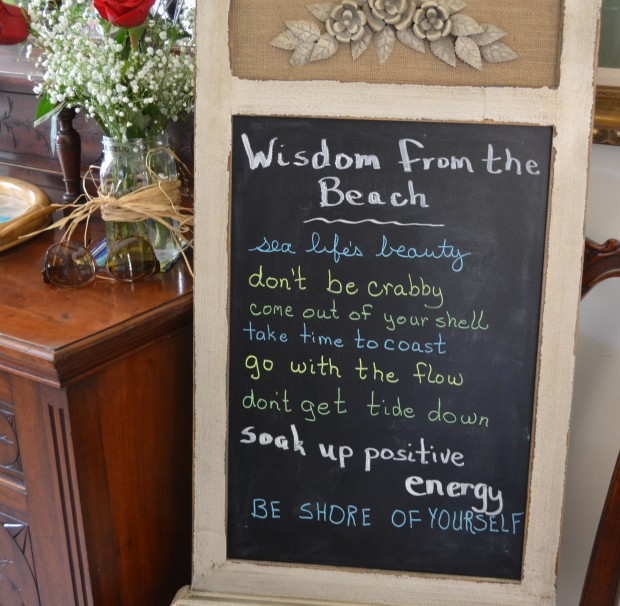 Wisdom From the
Beach
sea life's beauty
don't be crabby
come out of your shell
take time to coast
go with the flow
don't get tide down
soak up positive
energy
BE SHORE OF YOURSELF